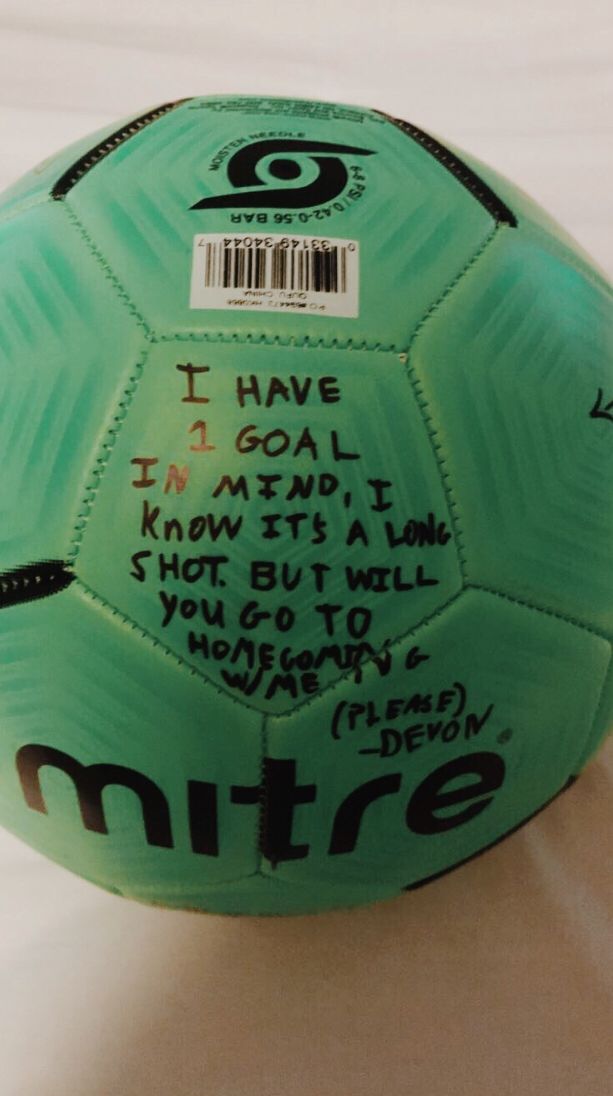 MOISTEN NEEDLE
6-8 PSI / 0.42-0.56 BAR
0 33149 34044 7
QUFU CHINA
I HAVE
1 GOAL
IN MIND, I
KNOW IT'S A LONG
SHOT. BUT WILL
YOU GO TO
HOMECOMING
W/ME
(PLEASE)
-DEVON
mitre®